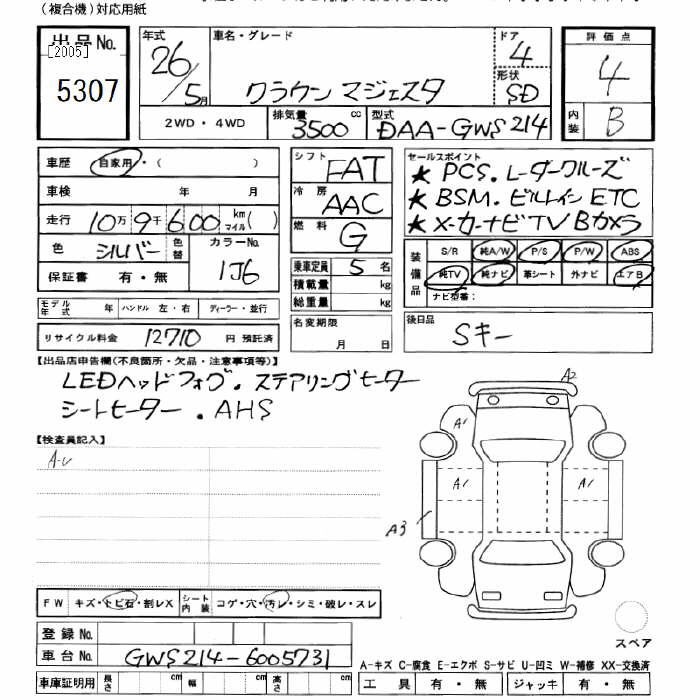 （複合機）対応用紙
出品No.
[2005]
5307
年式
26/5月
車名・グレード
クラウン マジェスタ
ドア
4
形状
SD
評価点
4
内装
B
2WD ・ 4WD
排気量
3500 cc
型式
DAA-GWS214
車歴 自家用・（ ）
車検 年 月
走行 10万9千600 km マイル( )
色 シルバー 色替 カラーNo. 1J6
保証書 有・無
シフト FAT
冷房 AAC
燃料 G
乗車定員 5 名
積載量 kg
総重量 kg
セールスポイント
★ PCS. レーダークルーズ
★ BSM. ビルトイン ETC
★ メーカーナビ TV Bカメラ
装備品
S/R 純A/W P/S P/W ABS
純TV 純ナビ 革シート 外ナビ エアB
ナビ型番：
モデル年式 年 ハンドル 左・右 ディーラー・並行
リサイクル料金 12710 円 預託済
名変期限
月 日
後日品
Sキー
【出品店申告欄(不良箇所・欠品・注意事項等)】
LEDヘッドフォグ. ステアリングヒーター
シートヒーター . AHS
【検査員記入】
A2
A1
A1
A1
A3
FW キズ・トビ石・割レX シート内装 コゲ・穴・汚レ・シミ・破レ・スレ
登録No.
車台No. GWS214-6005731
車庫証明用 長さ cm 幅 cm 高さ cm
スペア
A-キズ C-腐食 E-エクボ S-サビ U-凹ミ W-補修 XX-交換済
工具 有・無 ジャッキ 有・無